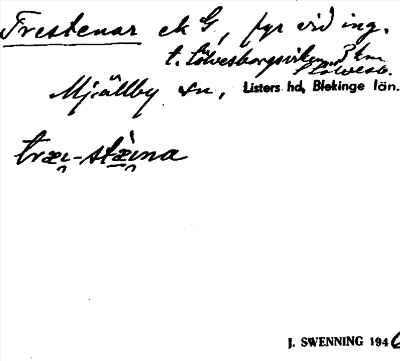 Frestenar ek G, fyr vid ing.
t. Sölvesborgsviken 3 km
Sölvesb.
Mjällby sn, Listers hd, Blekinge län.
træi-stæ̀ina
J. SWENNING 1946